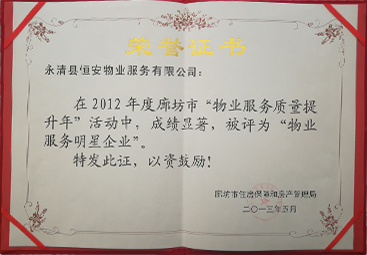 荣誉证书
永清县恒安物业服务有限公司：
在2012年度廊坊市“物业服务质量提
升年”活动中，成绩显著，被评为“物业
服务明星企业”。
特发此证，以资鼓励！
廊坊市住房保障和房产管理局
二〇一三年五月